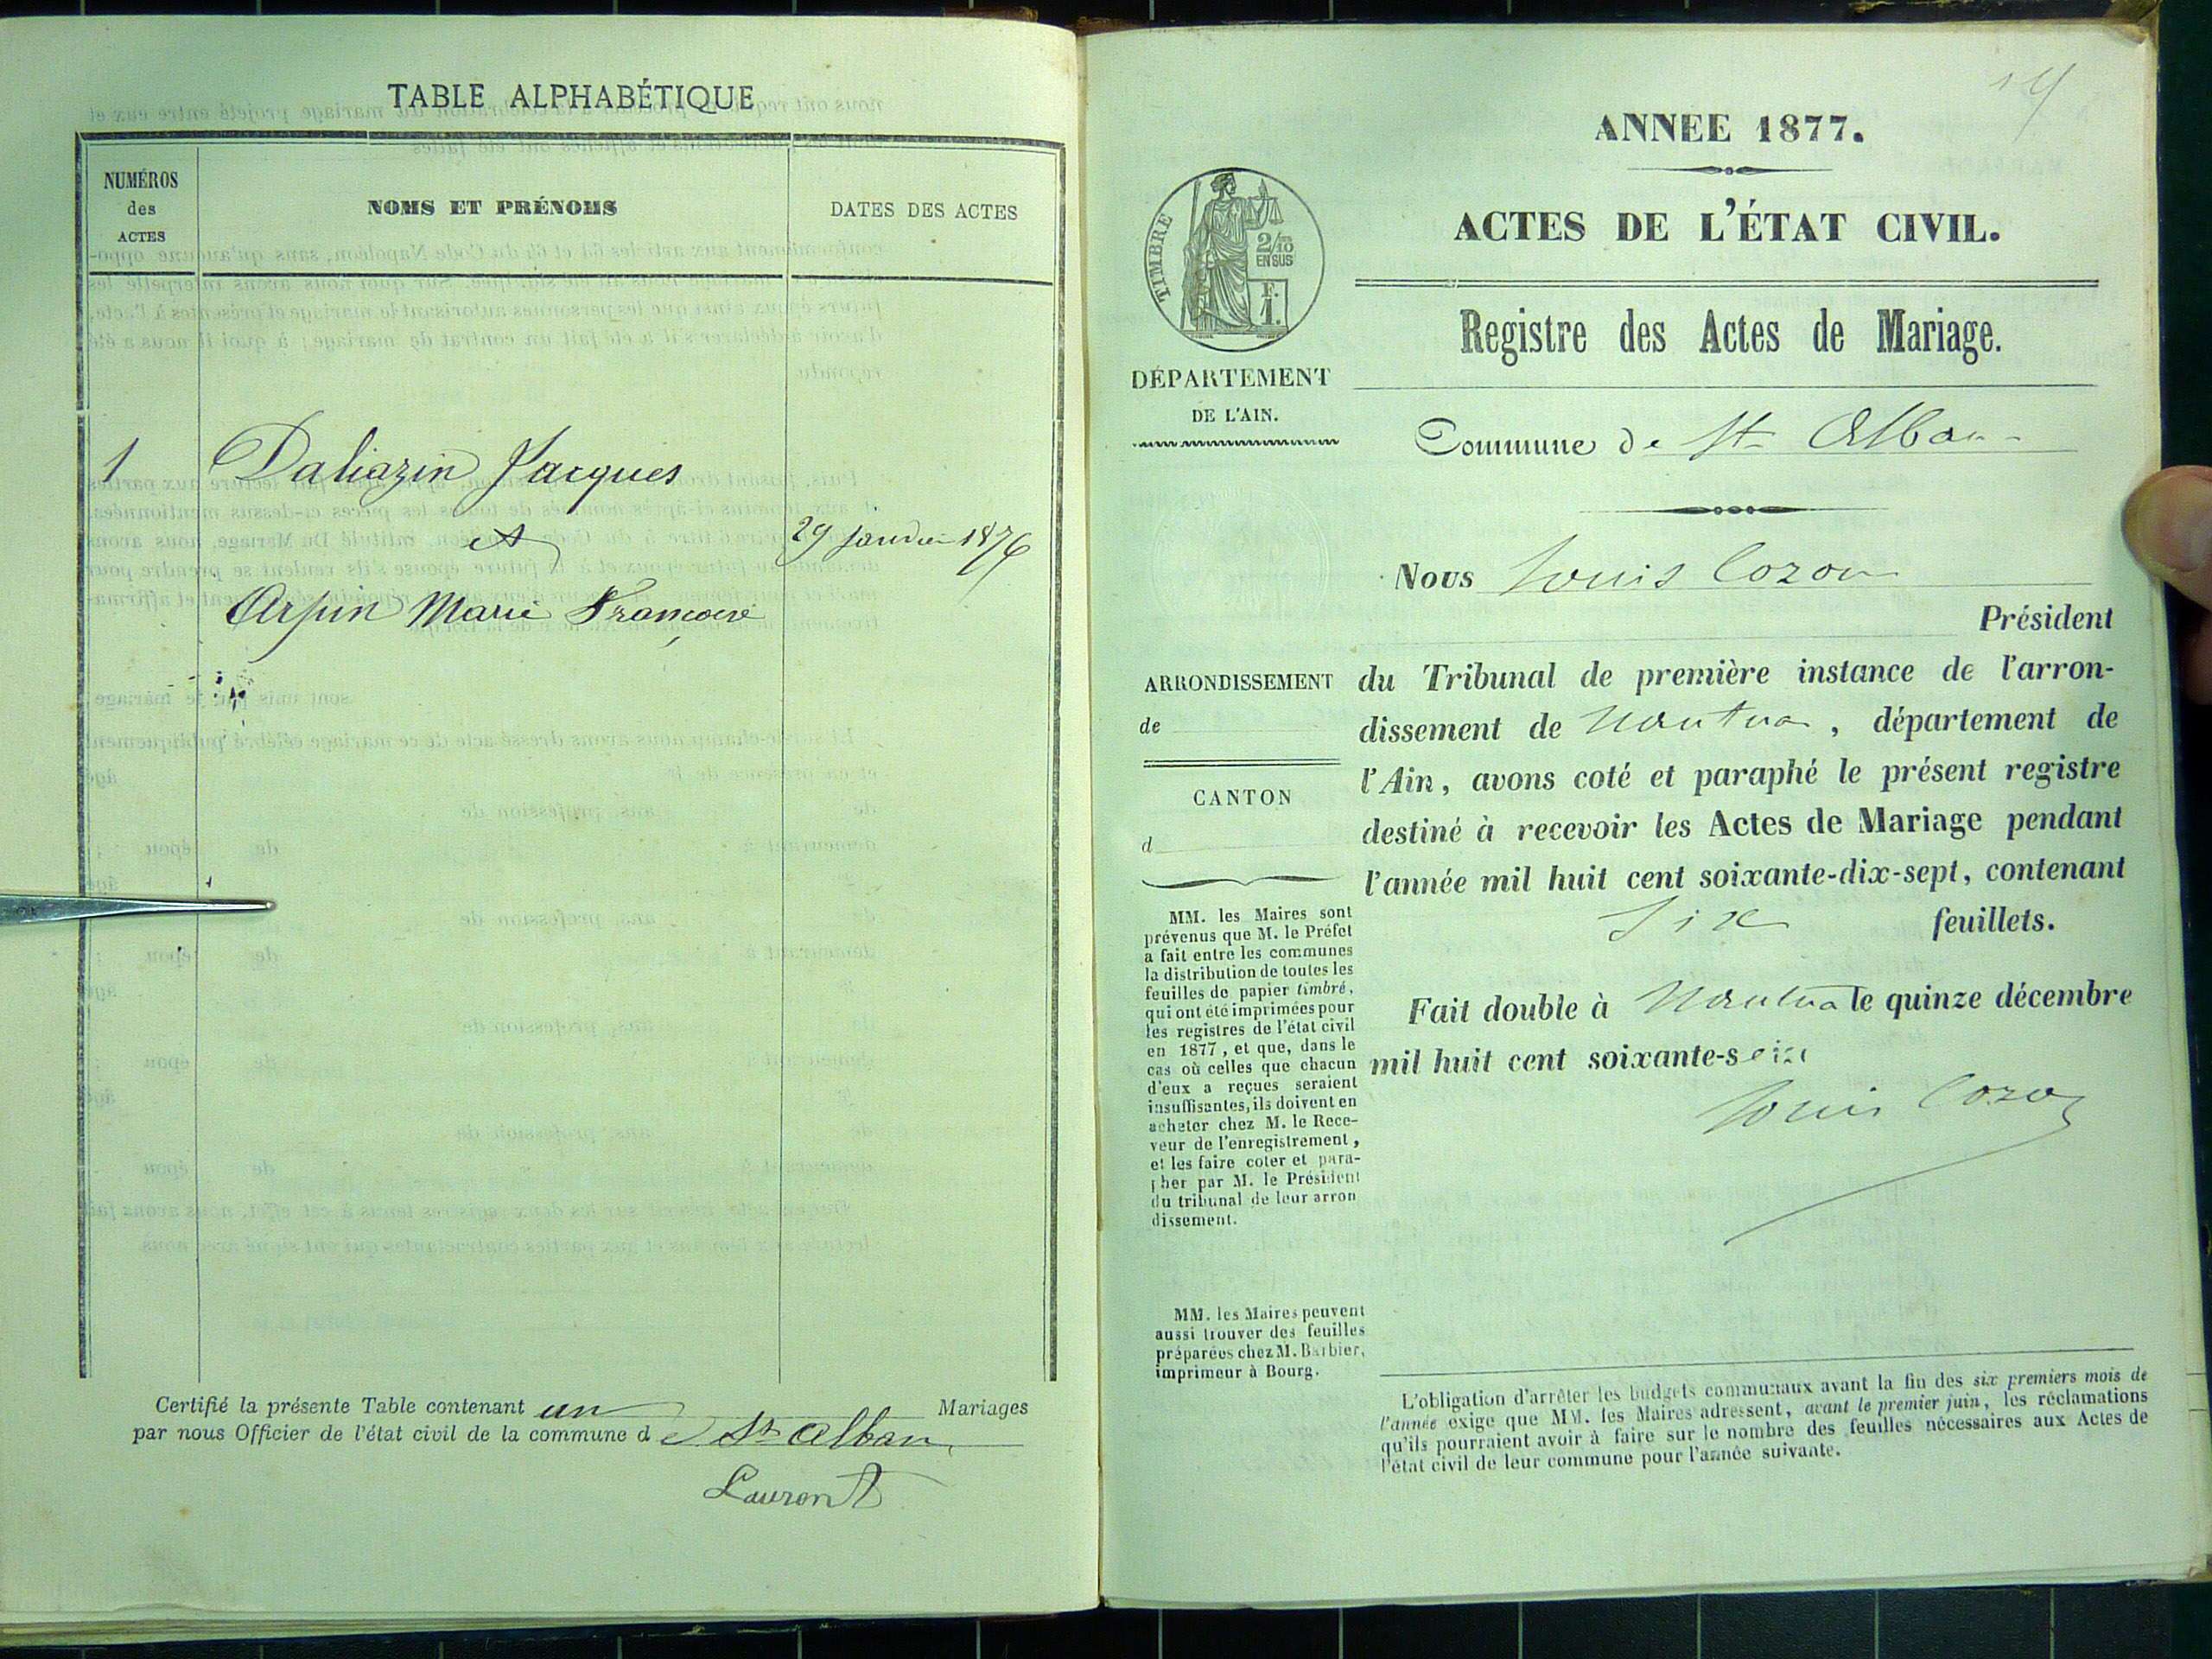 TABLE ALPHABÉTIQUE
NUMÉROS
des
ACTES
NOMS ET PRÉNOMS
DATES DES ACTES
1 Daliazin Jacques
et
29 janvier 1876
Arpin Marie Françoise
Certifié la présente Table contenant un Mariages
par nous Officier de l'état civil de la commune de St Alban
Laurent
ANNEE 1877.
ACTES DE L'ÉTAT CIVIL.
Registre des Actes de Mariage.
TIMBRE
2/10
EN SUS
F.
1.
DÉPARTEMENT
DE L'AIN.
Commune de St Alban
Nous Louis Cozon
Président
ARRONDISSEMENT
de
CANTON
d
du Tribunal de première instance de l'arron-
dissement de Nantua, département de
l'Ain, avons coté et paraphé le présent registre
destiné à recevoir les Actes de Mariage pendant
l'année mil huit cent soixante-dix-sept, contenant
Six feuillets.
Fait double à Nantua le quinze décembre
mil huit cent soixante-seize
Louis Cozon
MM. les Maires sont
prévenus que M. le Préfet
a fait entre les communes
la distribution de toutes les
feuilles de papier timbré,
qui ont été imprimées pour
les registres de l'état civil
en 1877, et que, dans le
cas où celles que chacun
d'eux a reçues seraient
insuffisantes, ils doivent en
acheter chez M. le Rece-
veur de l'enregistrement,
et les faire coter et para-
pher par M. le Président
du tribunal de leur arron
dissement.
MM. les Maires peuvent
aussi trouver des feuilles
préparées chez M. Barbier,
imprimeur à Bourg.
L'obligation d'arrêter les budgets communaux avant la fin des six premiers mois de
l'année exige que MM. les Maires adressent, avant le premier juin, les réclamations
qu'ils pourraient avoir à faire sur le nombre des feuilles nécessaires aux Actes de
l'état civil de leur commune pour l'année suivante.